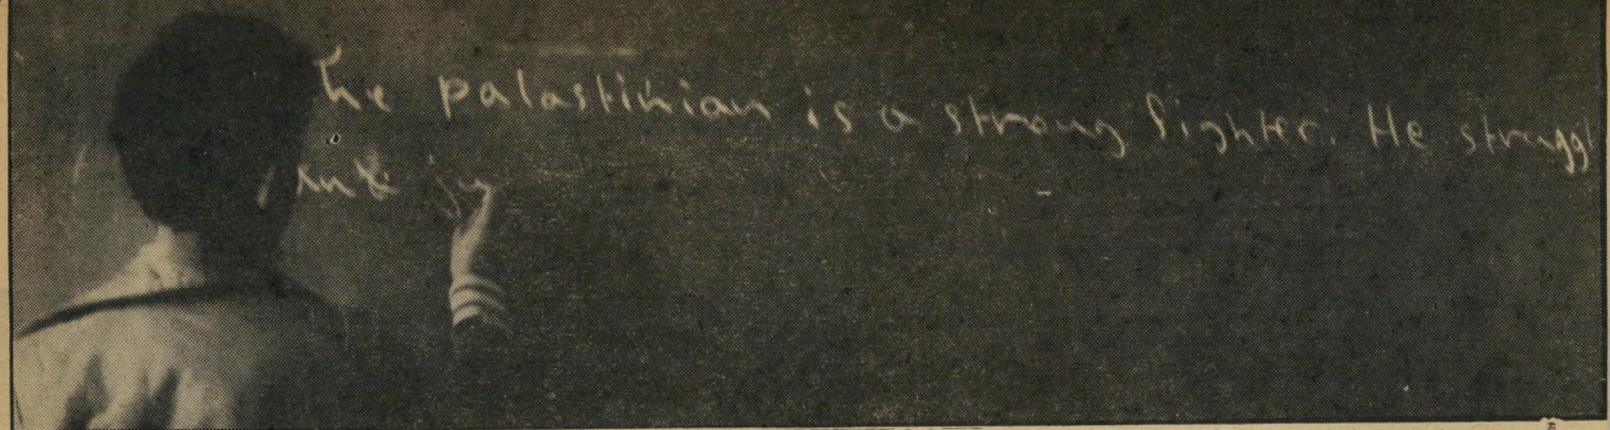 The palastinian is a strong fighter. He struggl